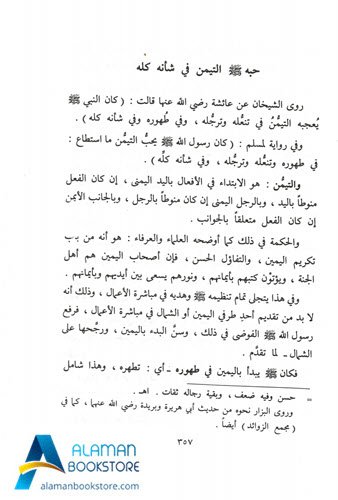 حبه ﷺ التيمن في شأنه كله
روى الشيخان عن عائشة رضي الله عنها قالت : ( كان النبي ﷺ
يُعجبه التيمُّنُ في تنعُّله وترجُّله ، وفي طُهوره وفي شأنه كله ) .
وفي رواية لمسلم : ( كان رسول الله ﷺ يحبُّ التيمُّن ما استطاع :
في طهوره وتنعُّله وترجُّله ، وفي شأنه كلِّه ) .
والتيمُّن : هو الابتداء في الأفعال باليد اليمنى ، إن كان الفعل
منوطاً باليد ، وبالرجل اليمنى إن كان منوطاً بالرجل ، وبالجانب الأيمن
إن كان الفعل متعلقاً بالجوانب .
والحكمة في ذلك كما أوضحه العلماء والعرفاء : هو أنه من باب
تكريم اليمين ، والتفاؤل الحسن ، فإن أصحاب اليمين هم أهل
الجنة ، ويؤتوْن كتبهم بأيمانهم ، ونورهم يسعى بين أيديهم وبأيمانهم .
وفي هذا يتجلى تمام تنظيمه ﷺ وهديه في مباشرة الأعمال ، وذلك أنه
لا بد من تقديم أحد طرفي اليمين أو الشمال في مباشرة الأعمال ، فرفع
رسول الله ﷺ الفوضى في ذلك ، وسنَّ البدء باليمين ، ورجَّحها على
الشمال ــ لما تقدَّم .
فكان ﷺ يبدأ باليمين في طهوره ــ أي : تطهره ، وهذا شامل
= حسن وفيه ضعف ، وبقية رجاله ثقات . اهـ .
وروى البزار نحوه من حديث أبي هريرة وبريدة رضي الله عنهما ، كما في
( مجمع الزوائد ) أيضاً .
٣٥٧
ALAMAN
BOOKSTORE
alamanbookstore.com